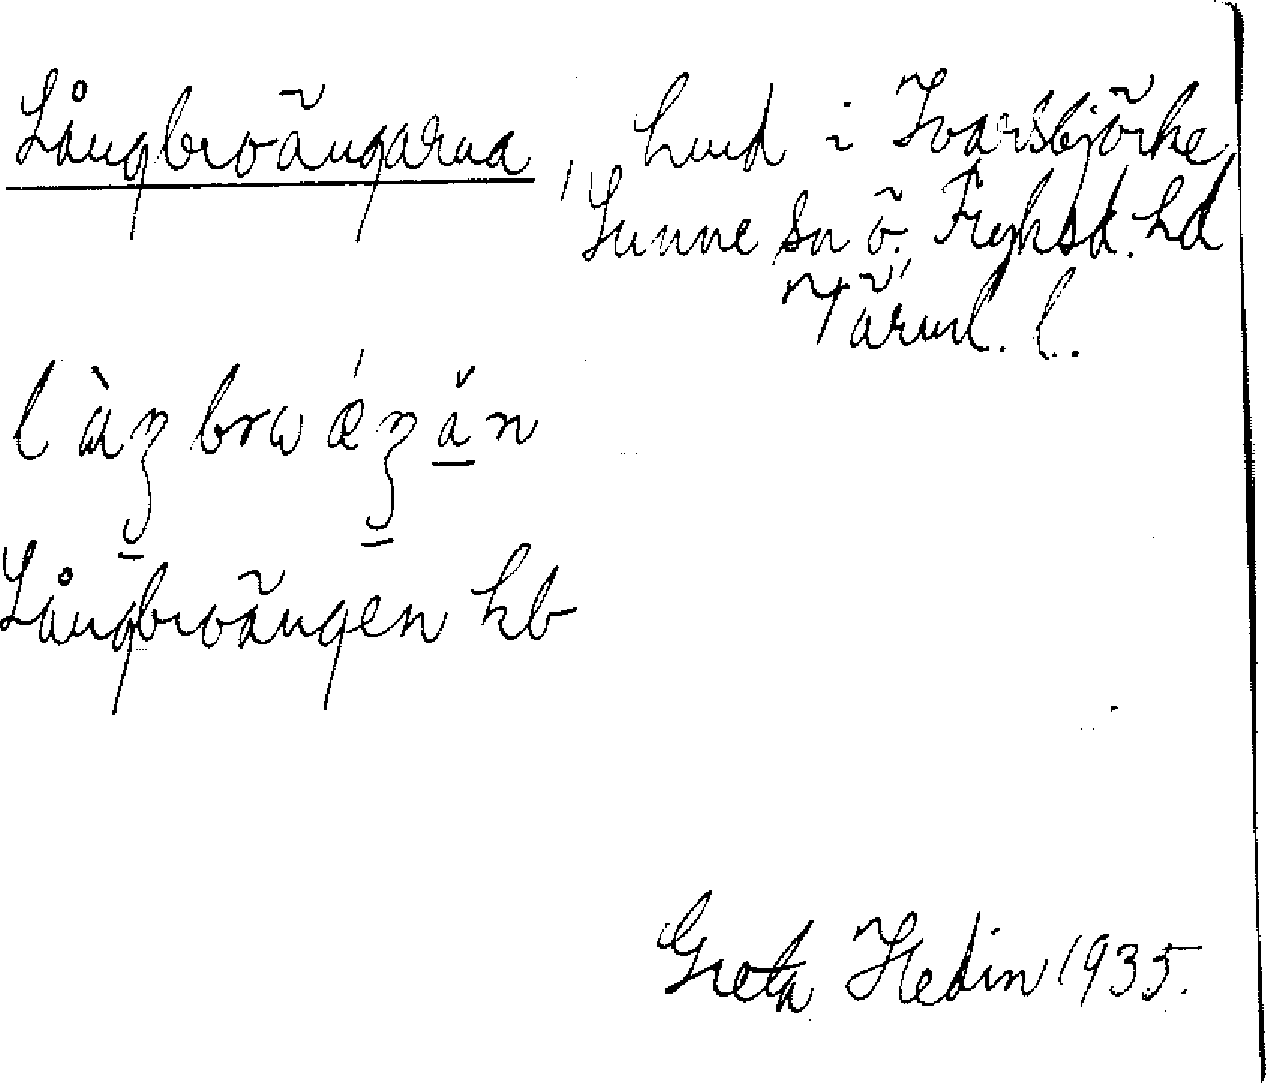 Långbroängarna, hmd i Ivarsbjörke
Sunne sn ö. Fryksd. hd
Värml. l.
làŋbrωǽŋăn
Långbroängen hb
Greta Hedin 1935.